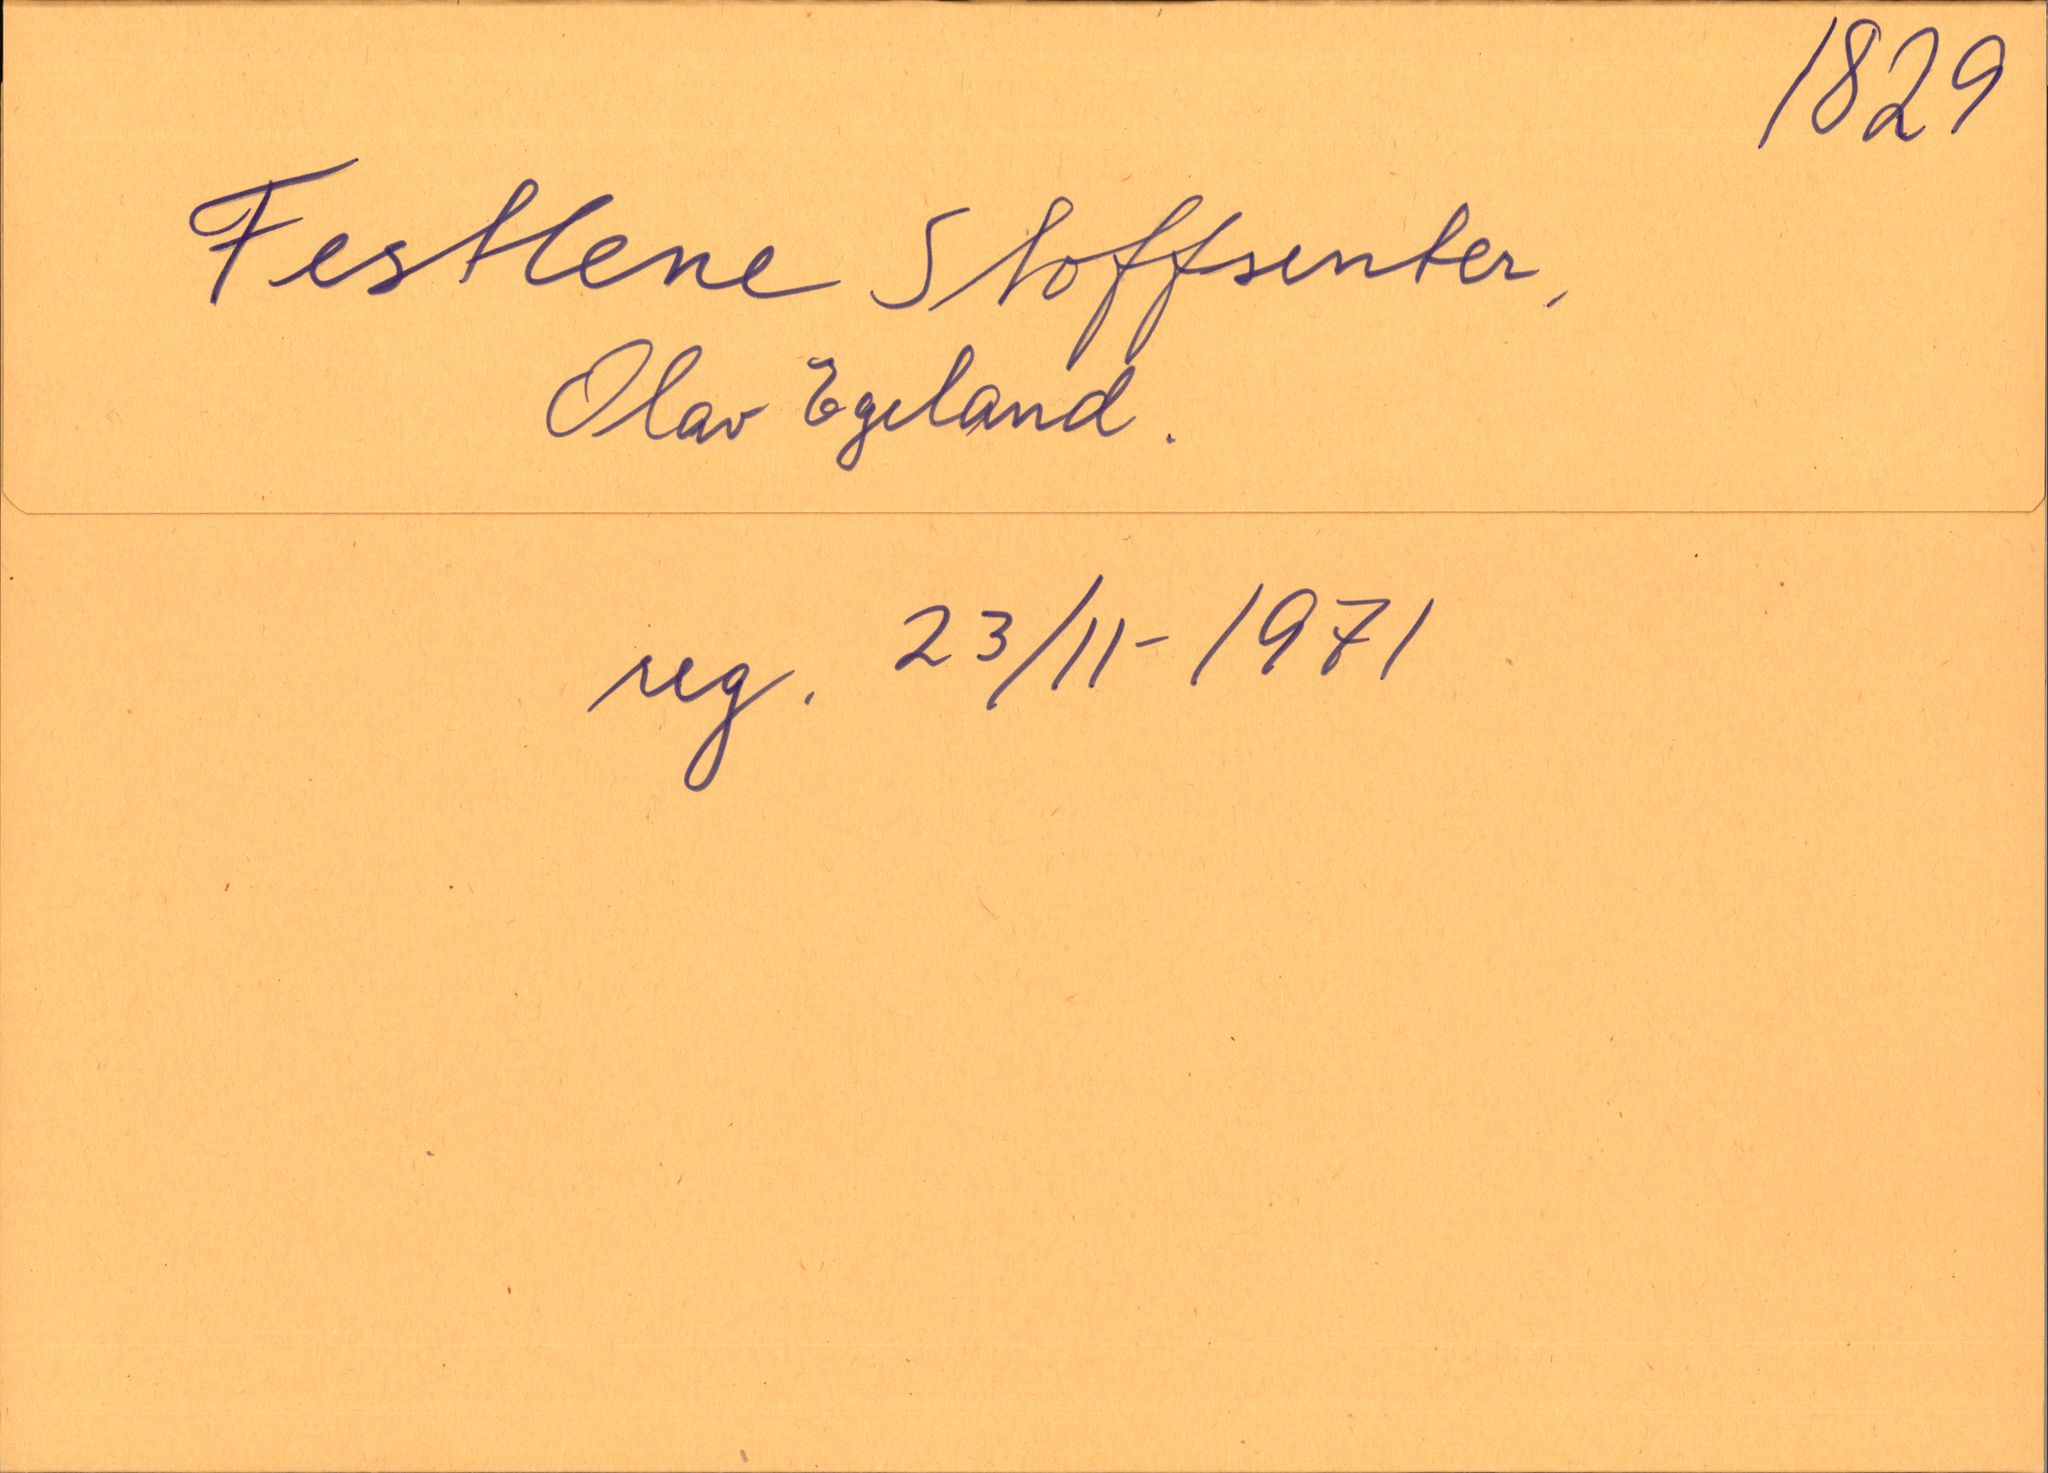 1829
Festlene Stoffsenter,
Olav Egeland.
reg. 23/11-1971